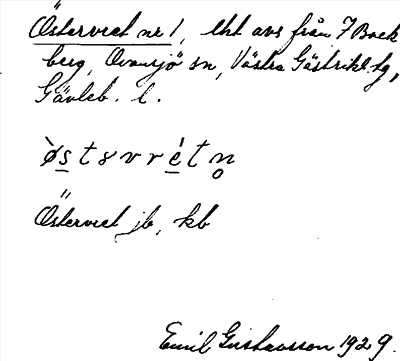 Östervret nr 1, lht avs från 7 Back
berg, Ovansjö sn, Västra Gästrikl. tg,
Gävleb. l.
ø̀s̲tsvrèt n̥
Östervret jb, kb
Emil Gustavsson 1929.